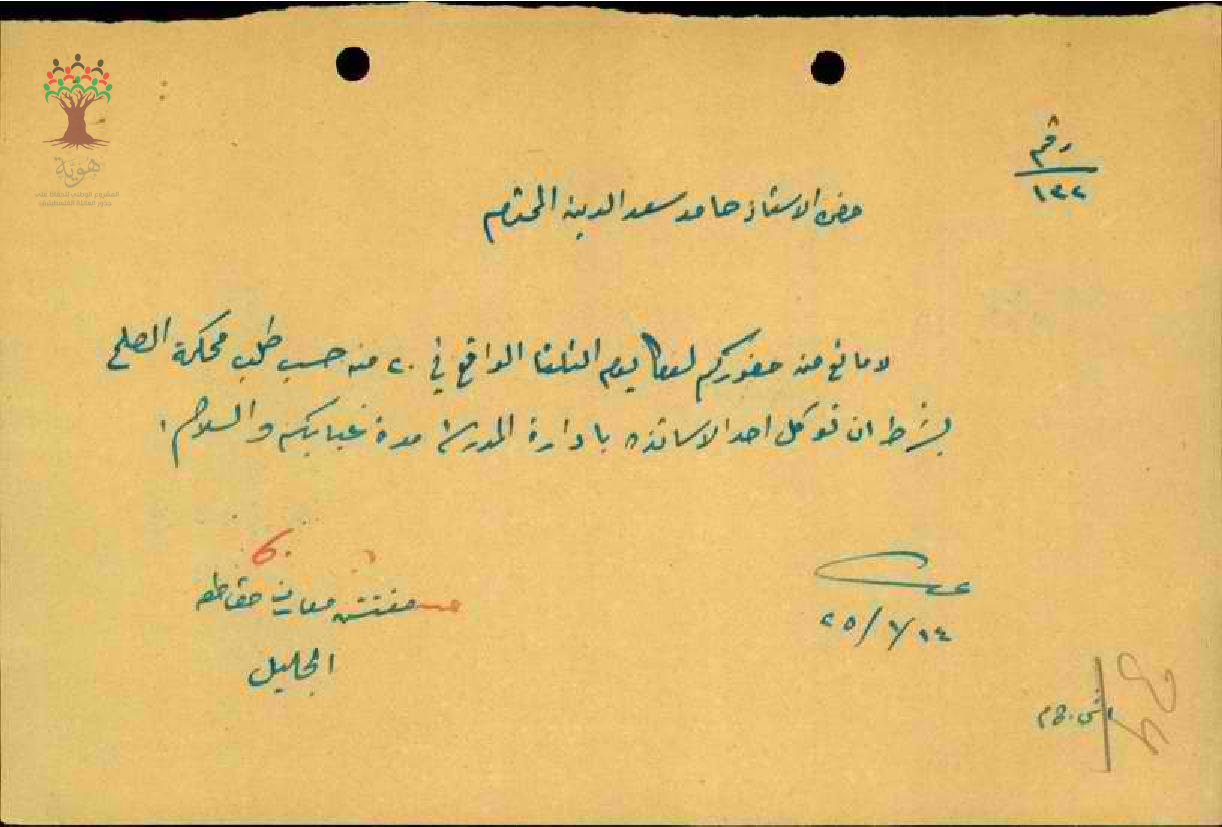 هوية
المشروع الوطني للحفاظ على
جذور العائلة الفلسطينية
رقم
١٣٢
حضرة الاستاذ حامد سعد الدين المحترم
لا مانع من حضوركم لعكا يوم الثلاثا الواقع في ٢٠ منه حسب طلب محكمة الصلح
بشرط ان توكل احد الاساتذه بادارة المدرسة مدة غيابكم والسلام
مفتش معارف مقاطعة
الجليل